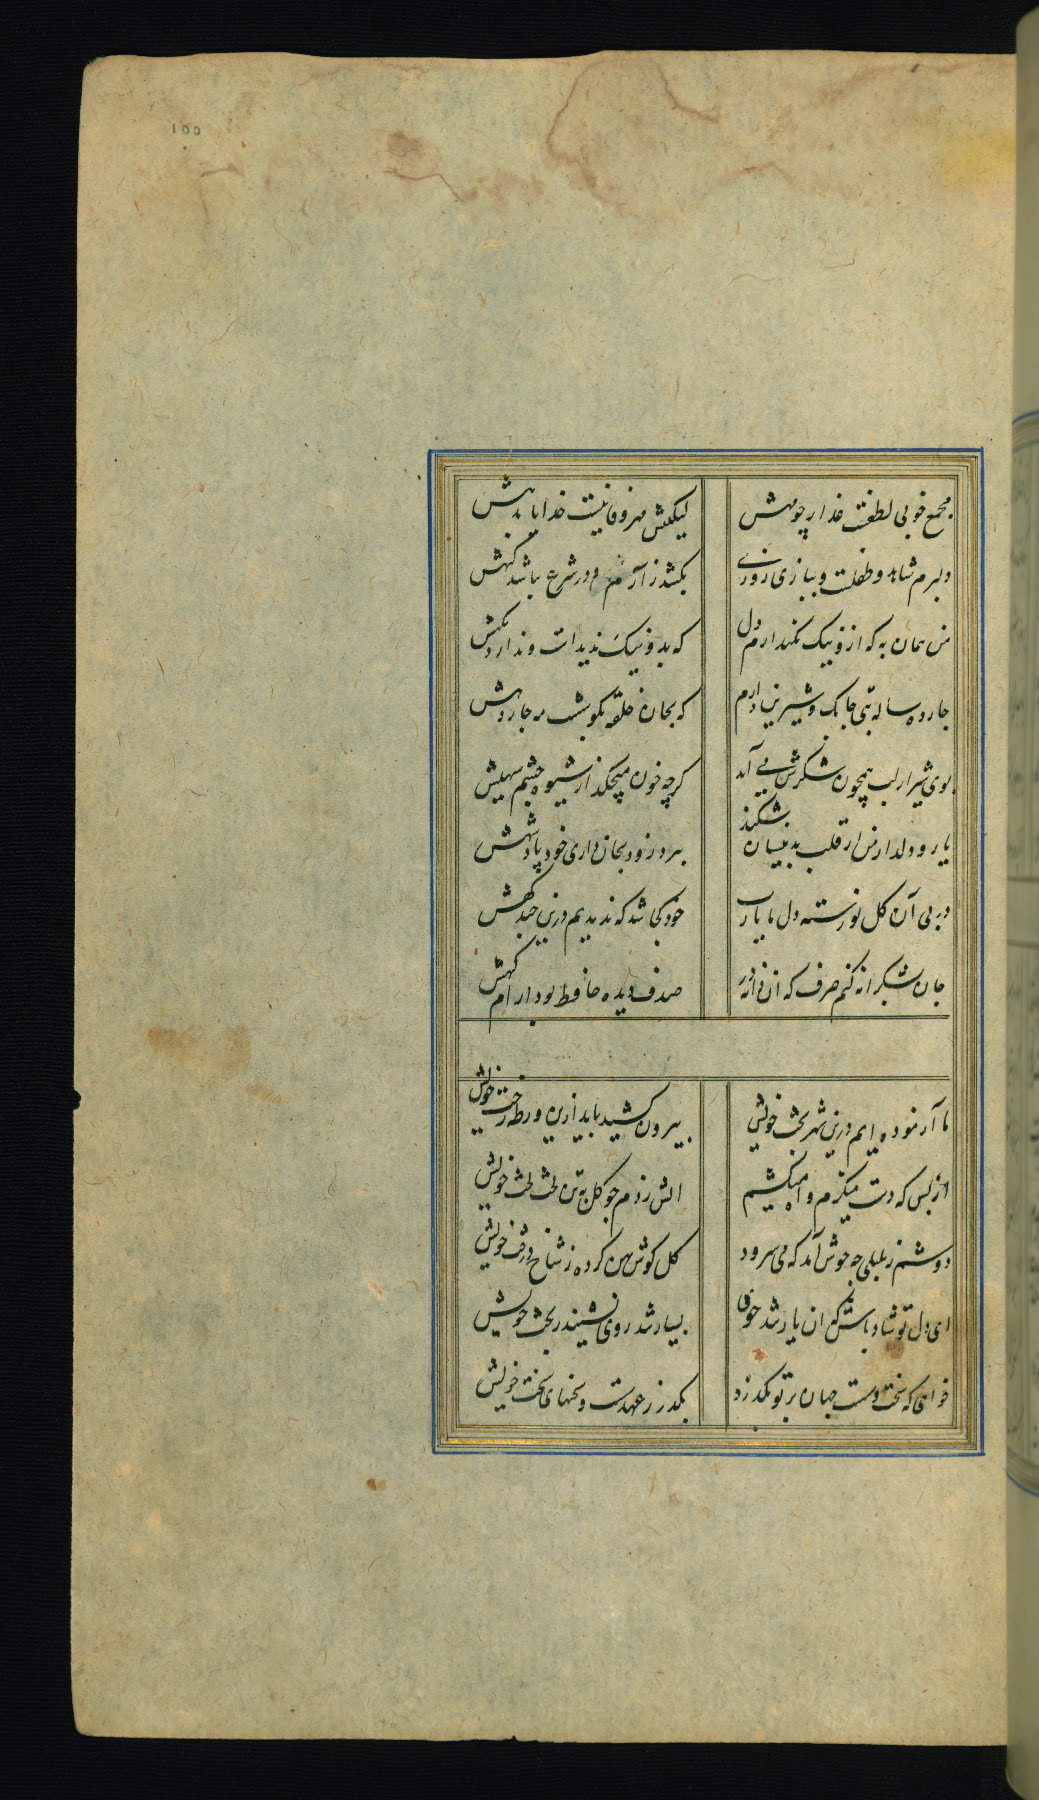 ١٥٥
مجمع خوبی لطفست عذار چو مهش
لیکنش مهر و وفا نیست خدایا بدهش
دلبرم شاهد و طفلست و ببازی روزی
بکشد زارم و در شرع نباشد گنهش
من همان به که ازو نیک نگه دارم دل
که بد و نیک ندیدست و ندارد نگهش
چارده ساله بتی چابک و شیرین دارم
که بجان حلقه بگوشست مه چاردهش
بوی شیر از لب همچون شکرش می آید
گرچه خون میچکد از شیوه چشم سیهش
یار دلدار من ار قلب بدینسان شکند
ببرد زود بجان داری خود پادشهش
در پی آن گل نورسته دل ما یا رب
خود کجا شد که ندیدیم درین چند گهش
جان بشکرانه کنم صرف گر آن دانه در
صدف دیده حافظ بود آرامگهش
ما آزموده ایم درین شهر بخت خویش
بیرون کشید باید ازین ورطه رخت خویش
از بس که دست میگزم و آه میکشم
آتش زدم چو گل به تن لخت لخت خویش
دوشم ز بلبلی چه خوش آمد که می سرود
گل گوش پهن کرده ز شاخ درخت خویش
ای دل تو شاد باش که آن یار تندخوی
بسیار تند روی نشیند ز بخت خویش
خواهی که سخت و سست جهان بر تو بگذرد
بگذر ز عهد سست و سخنهای سخت خویش